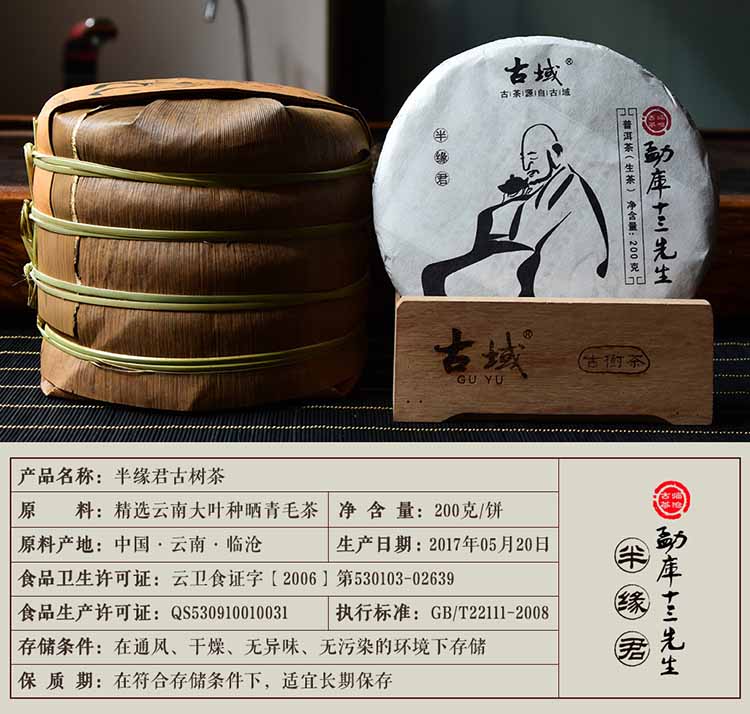 古域®
古·茶·源·自·古·域
半缘君
临沧古茶
勐库十三先生
普洱茶（生茶） 净含量：200克
古域®
GU YU
古树茶
产品名称：半缘君古树茶
原 料：精选云南大叶种晒青毛茶 净 含 量：200克/饼
原料产地：中国·云南·临沧 生产日期：2017年05月20日
食品卫生许可证：云卫食证字【2006】第530103-02639
食品生产许可证：QS530910010031 执行标准：GB/T22111-2008
存储条件：在通风、干燥、无异味、无污染的环境下存储
保 质 期：在符合存储条件下，适宜长期保存
临沧古茶
勐库十三先生
半缘君